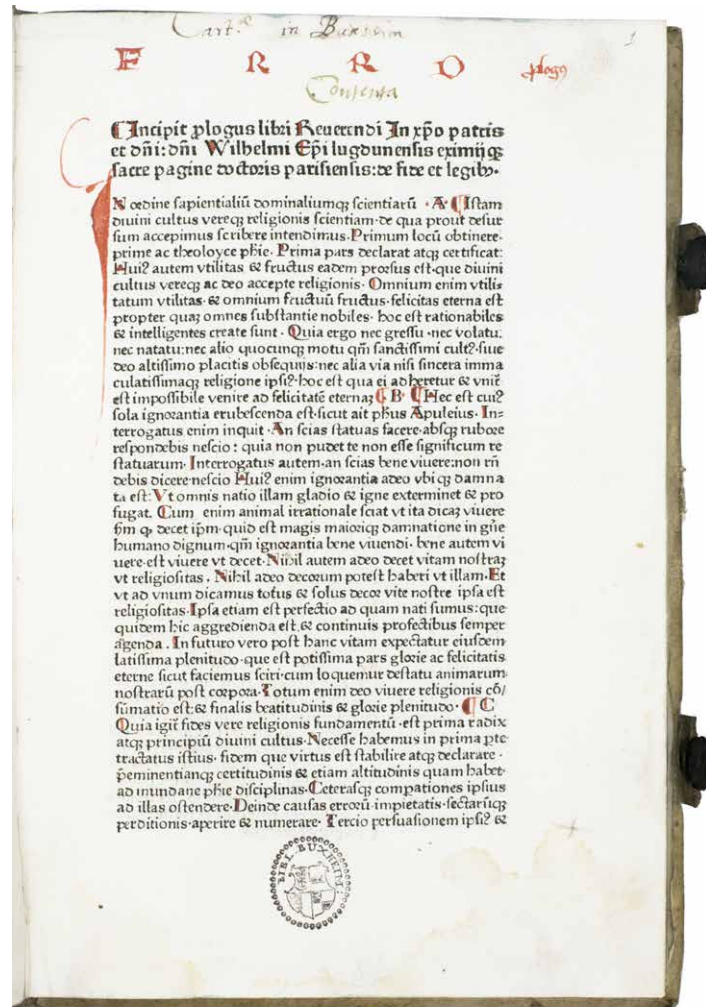 Cartᵃᵉ in Buxheim
1
F R R O ꝓlogꝰ
¶Incipit ꝓlogus libri Reuerendi In xp̄o patris
et dn̄i: dn̄i Wilhelmi Ep̄i lugdunensis eximij qꝫ
sacre pagine doctoris parisiensis: de fide et legibꝫ.
IN ordine sapientialiū dominaliumqꝫ scientiarū · A· ¶Istam
diuini cultus vereqꝫ religionis scientiam·de qua prout desur
sum accepimus scribere intendimus·Primum locū obtinere·
prime ac theoloyce ph̄ie· Prima pars declarat atqꝫ certificat:
Huiꝰ autem vtilitas ⁊ fructus eadem prorsus est·que diuini
cultus vereqꝫ ac deo accepte religionis· Omnium enim vtili⸗
tatum vtilitas· ⁊ omnium fructuū fructus· felicitas eterna est
propter quaꝫ omnes substantie nobiles· hoc est rationabiles
⁊ intelligentes create sunt· Quia ergo nec gressu ·nec volatu:
nec natatu:nec alio quocunqꝫ motu qm̄ sanctissimi cultꝰ·siue
deo altissimo placitis obsequijs:nec alia via nisi sincera imma
culatissimaqꝫ religione ipsiꝰ·hoc est qua ei adheretur ⁊ vnit̄
est impossibile venire ad felicitatē eternaꝫ ¶ B· ¶Hec est cuiꝰ
sola ignorantia erubescenda est·sicut ait ph̄us Apuleius· In⸗
terrogatus enim inquit·An scias statuas facere·absqꝫ rubore
respondebis nescio : quia non pudet te non esse significum re
statuarum· Interrogatus autem·an scias bene viuere:non rn̄
debis dicere·nescio Huiꝰ enim ignorantia adeo vbiqꝫ damna
ta est: Vt omnis natio illam gladio ⁊ igne exterminet ⁊ pro
fugat. Cum enim animal irrationale sciat vt ita dicaꝫ viuere
sm̄ ꝙ decet ip̄m·quid est magis maioriqꝫ damnatione in gn̄e
humano dignum·qm̄ ignorantia bene viuendi· bene autem vi
uere·est viuere vt decet·Nihil autem adeo decet vitam nostraꝫ
vt religiositas . Nihil adeo decorum potest haberi vt illam·Et
vt ad vnum dicamus totus ⁊ solus decor vite nostre ipsa est
religiositas·Ipsa etiam est perfectio ad quam nati sumus: que
quidem hic aggredienda est·⁊ continuis profectibus semper
agenda . In futuro vero post hanc vitam expectatur eiusdem
latissima plenitudo·que est potissima pars glorie ac felicitatis
eterne sicut faciemus sciri·cum loquemur destatu animarum
nostrarū post corpora·Totum enim deo viuere religionis cō/
sūmatio est:⁊ finalis beatitudinis ⁊ glorie plenitudo· ¶ C
Quia igit̄ fides vere religionis fundamentū ·est prima radix
atqꝫ principiū diuini cultus·Necesse habemus in prima ꝑte
tractatus istius· fidem que virtus est·stabilire atqꝫ declarare ·
p̄eminentianqꝫ certitudinis ⁊ etiam altitudinis quam habet·
ad mundane ph̄ie disciplinas·Ceterasqꝫ compationes ipsius
ad illas ostendere·Deinde causas errorū·impietatis·sectarūqꝫ
perditionis·aperire ⁊ numerare· Tercio persuasionem ipsiꝰ ⁊
BIBL. BUXHEIM: